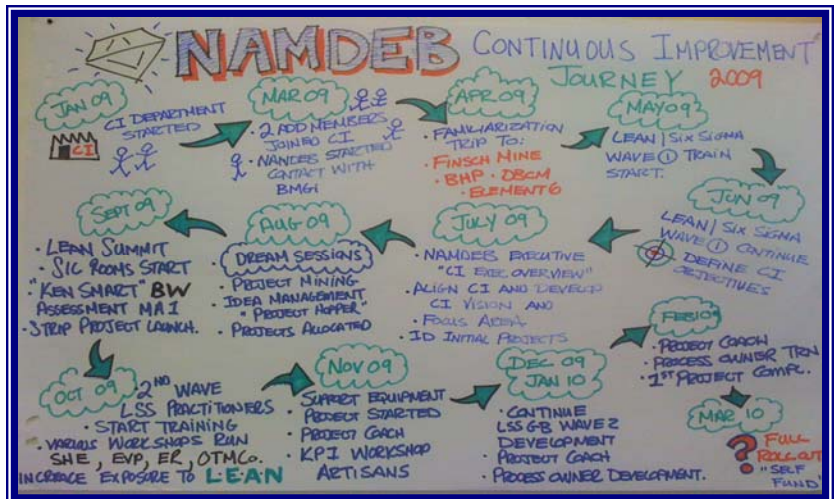 NAMDEB CONTINUOUS IMPROVEMENT
JOURNEY 2009
JAN 09
CI DEPARTMENT
STARTED
CI
MAR 09
• 2 ADD MEMBERS
JOINED CI
• NAMDEB STARTED
CONTACT WITH
BMGI
APR 09
• FAMILIARIZATION
TRIP TO:
• FINSCH MINE
• BHP • DBCM
• ELEMENT 6
MAY 09
LEAN | SIX SIGMA
WAVE ① TRAIN
START.
JUN 09
LEAN | SIX SIGMA
WAVE ① CONTINUE
DEFINE CI
OBJECTIVES
JULY 09
• NAMDEB EXECUTIVE
"CI EXEC OVERVIEW"
• ALIGN CI AND DEVELOP
CI VISION AND
• FOCUS AREA
• ID INITIAL PROJECTS
AUG 09
DREAM SESSIONS
• PROJECT MINING
• IDEA MANAGEMENT
"PROJECT HOPPER"
• PROJECTS ALLOCATED
SEPT 09
• LEAN SUMMIT
• SIC ROOMS START
• "KEN SMART" BW
ASSESSMENT MA1
• STRIP PROJECT LAUNCH.
OCT 09
2ND WAVE
LSS PRACTITIONERS
• START TRAINING
• VARIOUS WORKSHOPS RUN
SHE, EVP, ER, OTMCo.
INCREACE EXPOSURE TO L.E.A.N
NOV 09
• SUPPORT EQUIPMENT
• PROJECT STARTED
• PROJECT COACH
• KPI WORKSHOP
ARTISANS
DEC 09
JAN 10
• CONTINUE
LSS GB WAVE 2
DEVELOPMENT
• PROJECT COACH
• PROCESS OWNER DEVELOPMENT.
FEB 10
• PROJECT COACH
• PROCESS OWNER TRN
• 1ST PROJECT COMPL.
MAR 10
? FULL
ROLL OUT
"SELF
FUND"